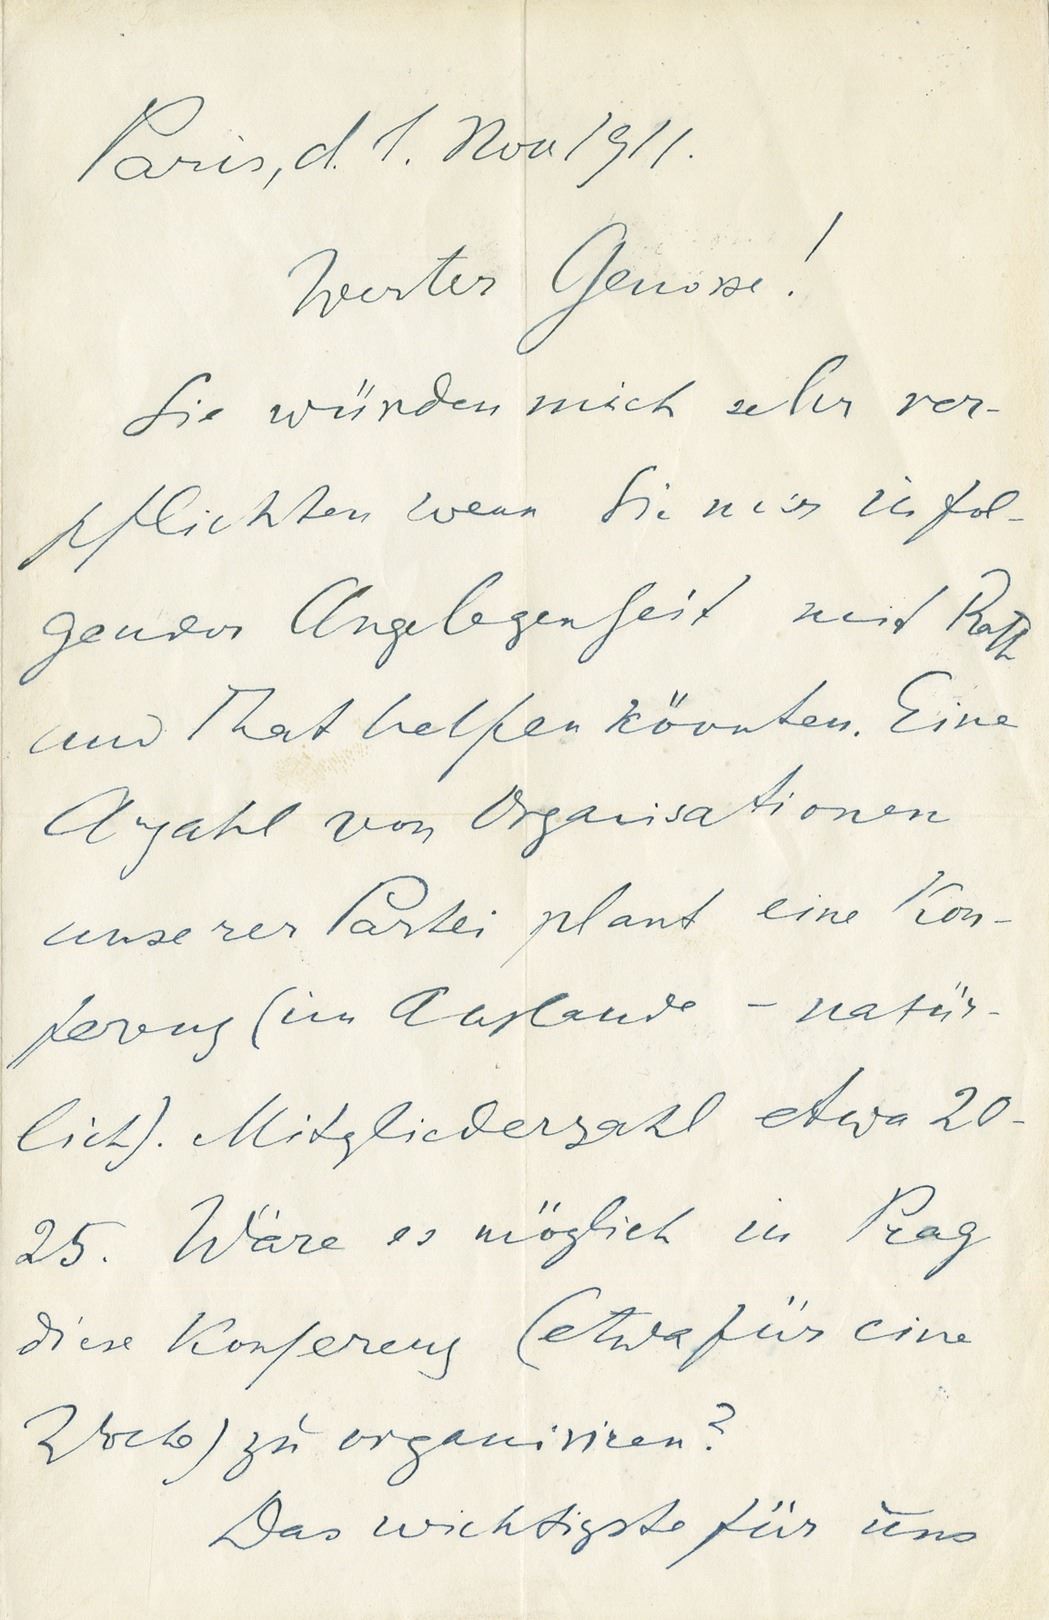 Paris, d. 1. Nov 1911.
Werter Genosse!
Sie würden mich sehr ver-
pflichten wenn Sie mir in fol-
gender Angelegenheit mit Rath
und That helfen könnten. Eine
Anzahl von Organisationen
unserer Partei plant eine Kon-
ferenz (im Auslande – natür-
lich). Mitgliederzahl etwa 20-
25. Wäre es möglich in Prag
diese Konferenz (etwa für eine
Woche) zu organisiren?
Das wichtigste für uns